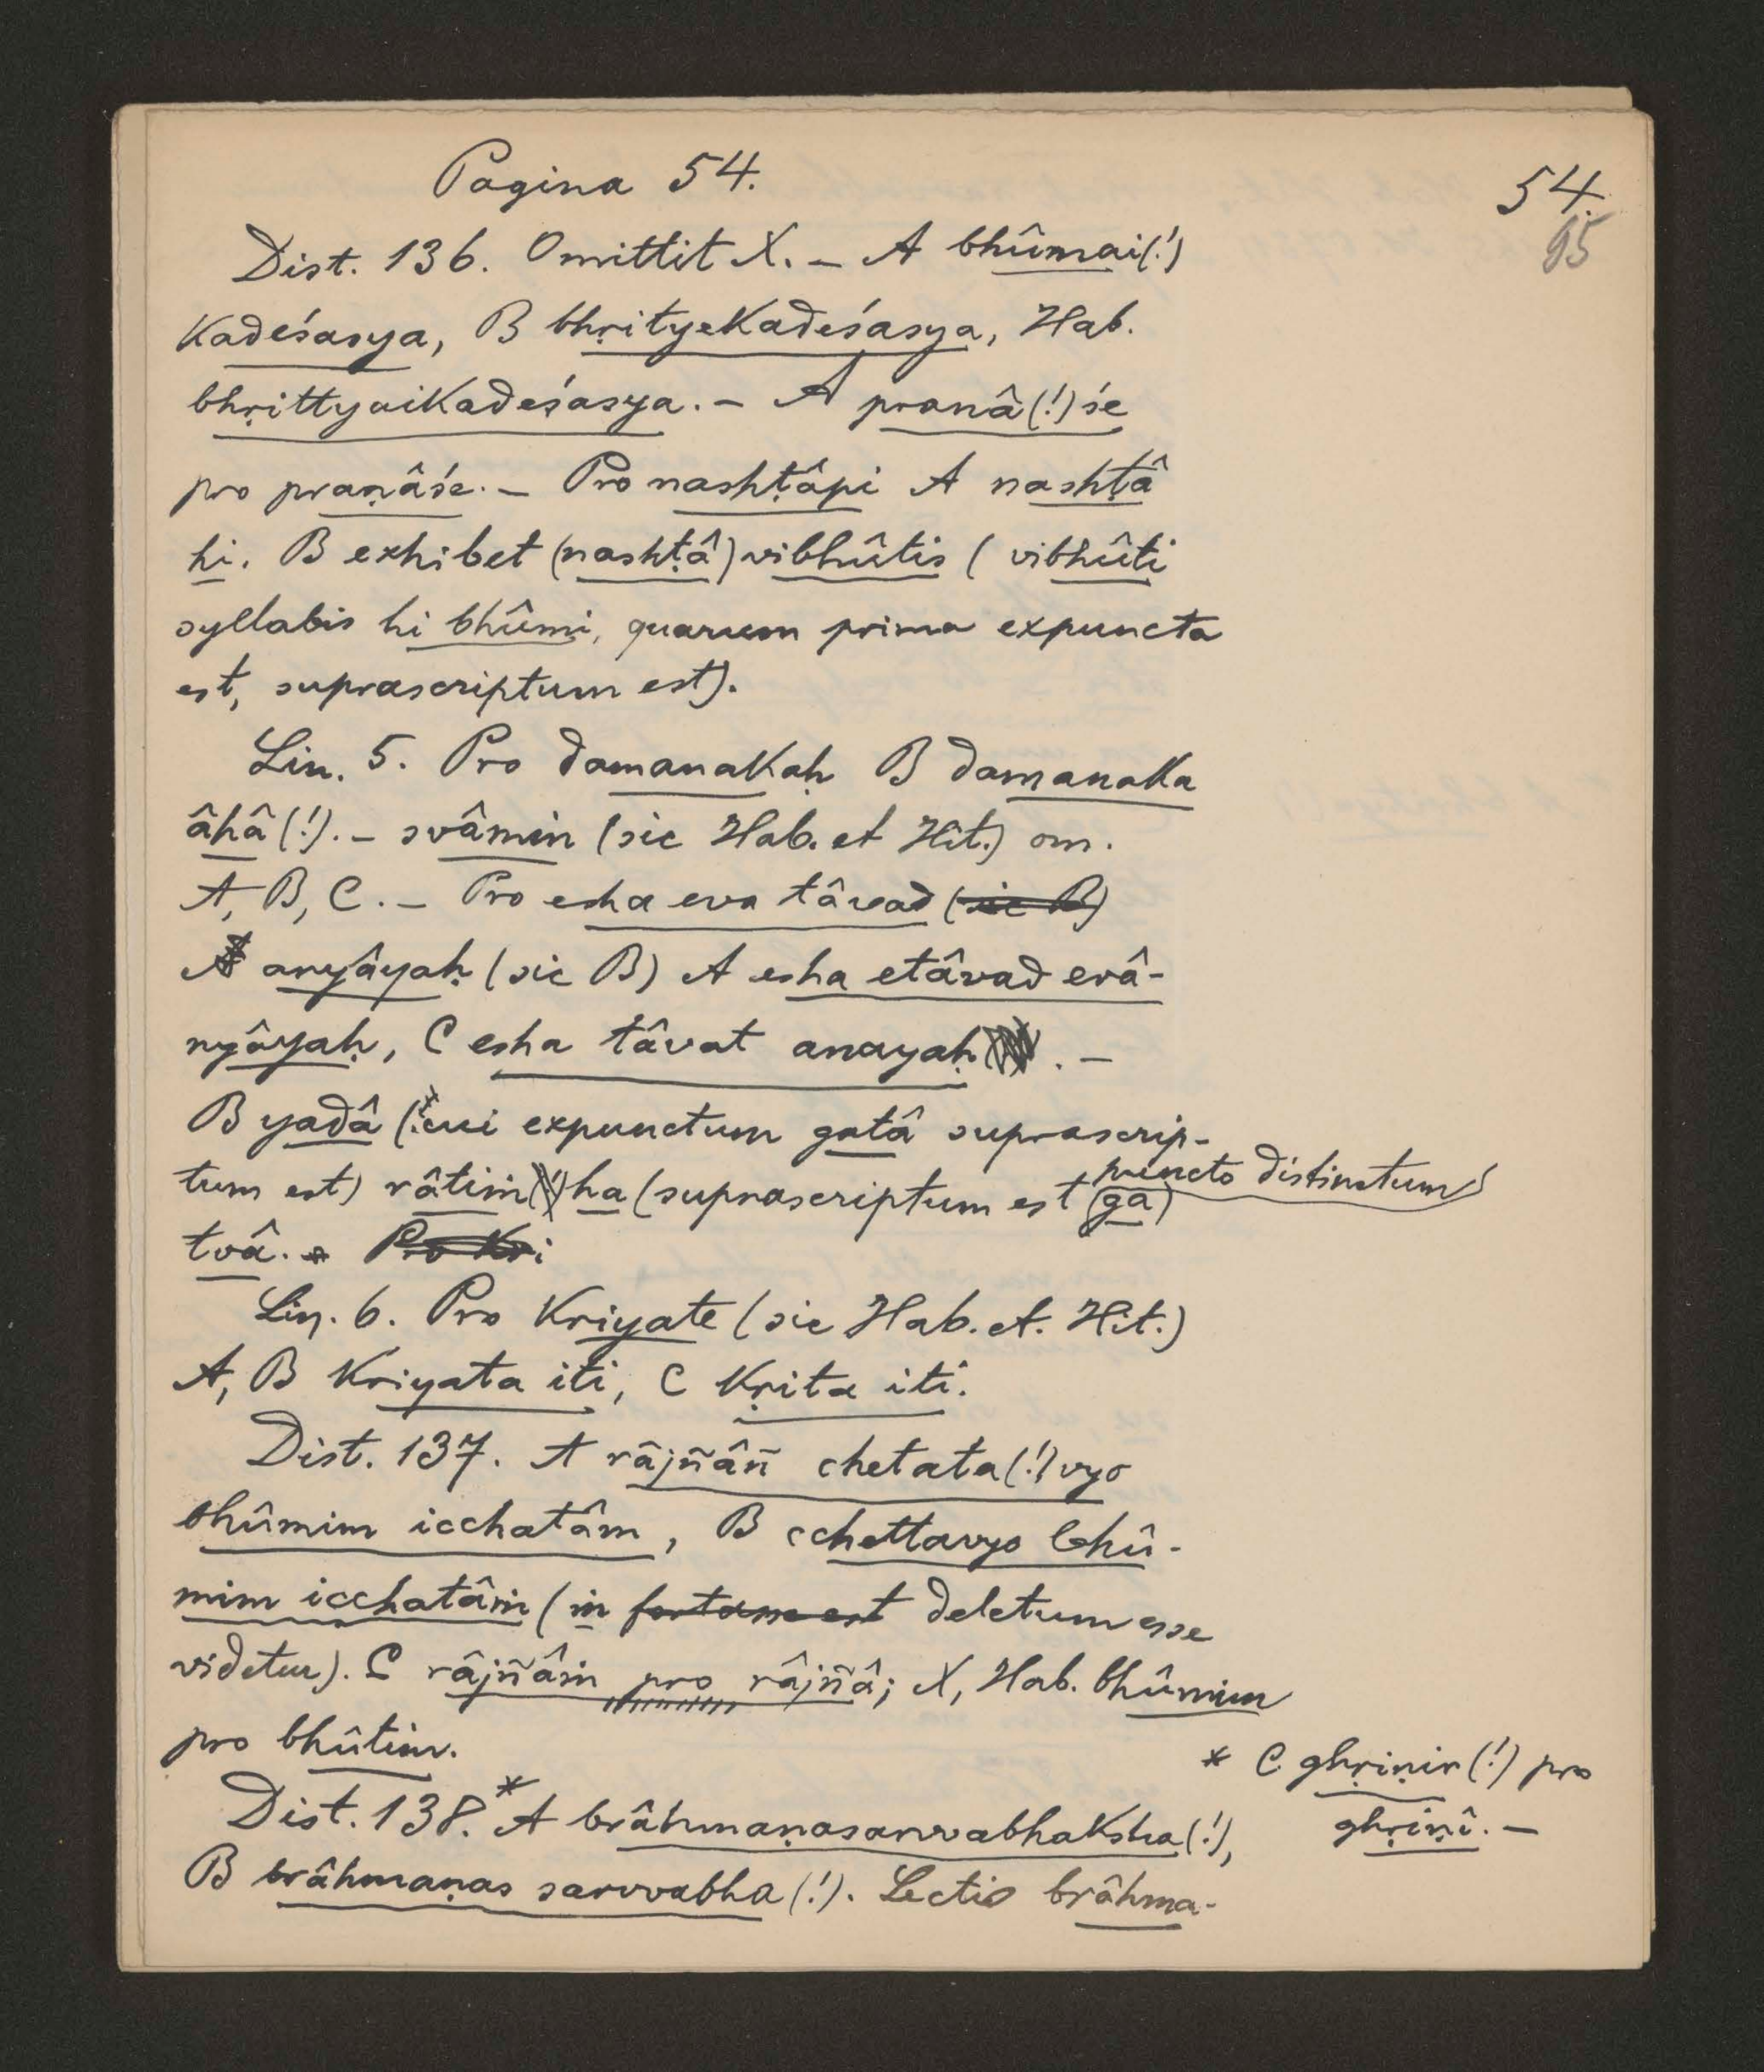 Pagina 54.
54.
95
Dist. 136. Omittit X. – A bhûmai(!)
kadeśasya, B bhṛityekadeśasya, Hab.
bhṛittyaikadeśasya. – A pranâ(!)śe
pro praṇâśe. – Pro nashṭâpi A nashṭâ
hi. B exhibet (nashṭâ) vibhûtis (vibhûti
syllabis hi bhûmi, quarum prima expuncta
est, suprascriptum est).
Lin. 5. Pro damanakaḥ B damanaka
âhâ(!). – svâmin (sic Hab. et Hit.) om.
A, B, C. – Pro esha eva tâvad (sic B)
A anyâyaḥ (sic B) A esha etâvad evâ-
nyâyaḥ, C esha tâvat anayaḥ . –
B yadâ (cui expunctum gatâ suprascrip-
tum est) râtiṁ(!)ha (suprascriptum est (ga) puncto distinctum)
tvâ. Pro kri
Lin. 6. Pro kriyate (sic Hab. et. Hit.)
A, B kriyata iti, C kṛita iti.
Dist. 137. A râjñâñ chetata(!)vyo
bhûmim icchatâm, B cchettavyo bhû-
mim icchatâṁ (ṁ fortasse est deletum esse
videtur). C râjñâṁ pro râjñâ; X, Hab. bhûmim
pro bhûtim.
* C ghṛiṇir(!) pro
ghṛiṇî. –
Dist. 138.* A brâhmaṇasarvvabhaksha(!),
B brâhmaṇas sarvvabha(!). Lectio brâhma-